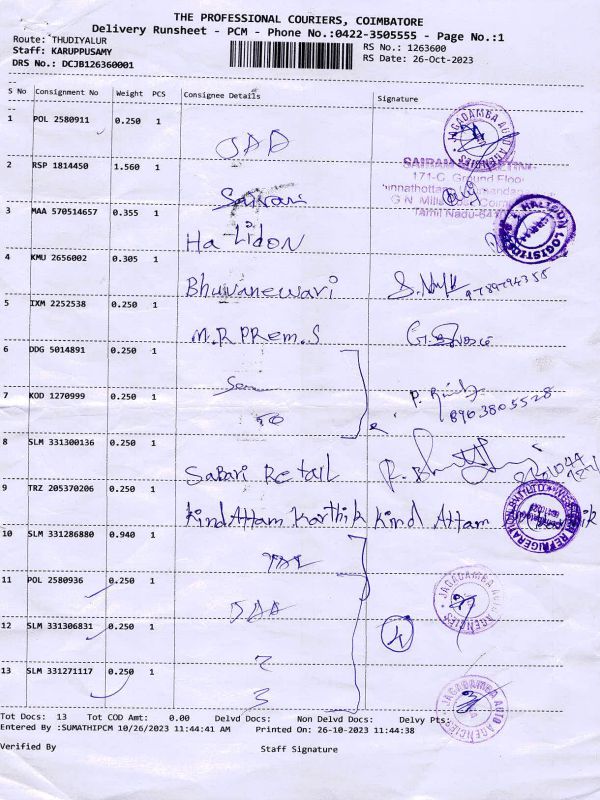 THE PROFESSIONAL COURIERS, COIMBATORE
Delivery Runsheet - PCM - Phone No.:0422-3505555 - Page No.:1
Route: THUDIYALUR
RS No.: 1263600
Staff: KARUPPUSAMY
RS Date: 26-Oct-2023
DRS No.: DCJB126360001
S No Consignment No Weight PCS Consignee Details Signature
1 POL 2580911 0.250 1
JAGADAMBA AUTO AGENCIES
2 RSP 1814450 1.560 1
171-C, Ground Floor
Tamil Nadu-641
3 MAA 570514657 0.355 1 Halidon
LOGISTICS
4 KMU 2656002 0.305 1 Bhuvanewari
9789794358
5 IXM 2252538 0.250 1 M.R PRem.S
6 DDG 5014891 0.250 1
7 KOD 1270999 0.250 1
8903805528
8 SLM 331300136 0.250 1 Sabari Retail
9 TRZ 205370206 0.250 1 Kind Attam Karthik Kind Attam
REFRIGERATION
10 SLM 331286880 0.940 1
11 POL 2580936 0.250 1
JAGADAMBA AUTO AGENCIES
12 SLM 331306831 0.250 1 2
4
13 SLM 331271117 0.250 1 3
JAGADAMBA AUTO AGENCIES
Tot Docs: 13 Tot COD Amt: 0.00 Delvd Docs: Non Delvd Docs: Delvy Pts:
Entered By :SUMATHIPCM 10/26/2023 11:44:41 AM Printed On: 26-10-2023 11:44:38
Verified By Staff Signature